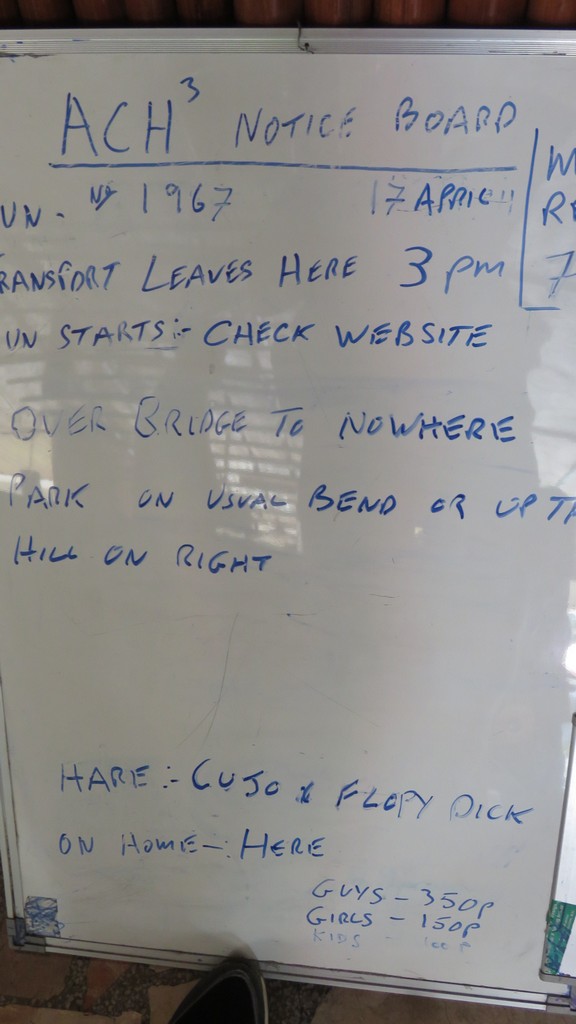 ACH³ NOTICE BOARD
UN. Nº 1967 17 APRIL
RANSPORT LEAVES HERE 3 pm
UN STARTS:- CHECK WEBSITE
OVER BRIDGE TO NOWHERE
PARK ON USUAL BEND OR UP TH
HILL ON RIGHT
HARE:- CUJO & FLOPY DICK
ON HOME-: HERE
GUYS - 350P
GIRLS - 150P
KIDS - 100P
W
RE
7